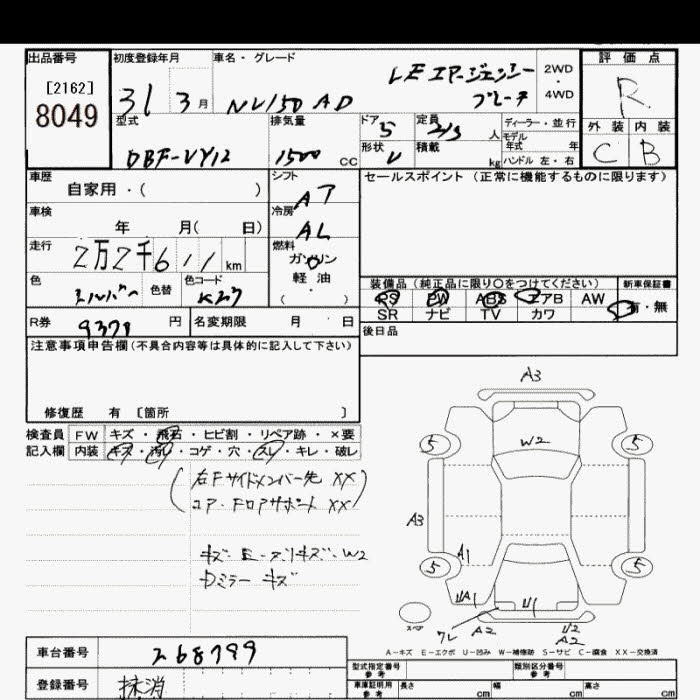 出品番号
[2162]
8049
初度登録年月
31 3月
車名・グレード
NV150 AD
LE エマージェンシー
ブレーキ
2WD
・
4WD
評価点
R
外装 内装
C B
型式
DBF-VY12
排気量
1500 cc
ドア 5
形状 V
定員 2/5 人
積載 kg
ディーラー・並行
モデル
年式 年
ハンドル 左・右
車歴
自家用・( )
シフト
AT
セールスポイント (正常に機能するものに限ります)
車検
年 月( 日)
冷房
AC
走行
2万2千611 km
燃料
ガソリン
軽油
・
( )
色
シルバー
色替
色コード
K23
装備品 (純正品に限り○をつけてください)
新車保証書
PS PW ABS エアB AW
SR ナビ TV カワ
有・無
R券
9370 円
名変期限 月 日
後日品
注意事項申告欄 (不具合内容等は具体的に記入して下さい)
修復歴 有 [箇所 ]
検査員 FW キズ・飛石・ヒビ割・リペア跡・×要
記入欄 内装 キズ・汚れ・コゲ・穴・スレ・キレ・破レ
右Fサイドメンバー先 XX
コア・Fロアサポート XX
キズ・E・スリキズ・W2
Dミラー キズ
A3
W2
5 5
A3
A1
5 5
UA1
U1
ワレ
A2
U2
A2
スペア
A-キズ E-エクボ U-凹み W-補修跡 S-サビ C-腐食 XX-交換済
車台番号
268799
登録番号
抹消
型式指定番号
参考
類別区分番号
参考
車庫証明用
参考
長さ cm
幅 cm
高さ cm